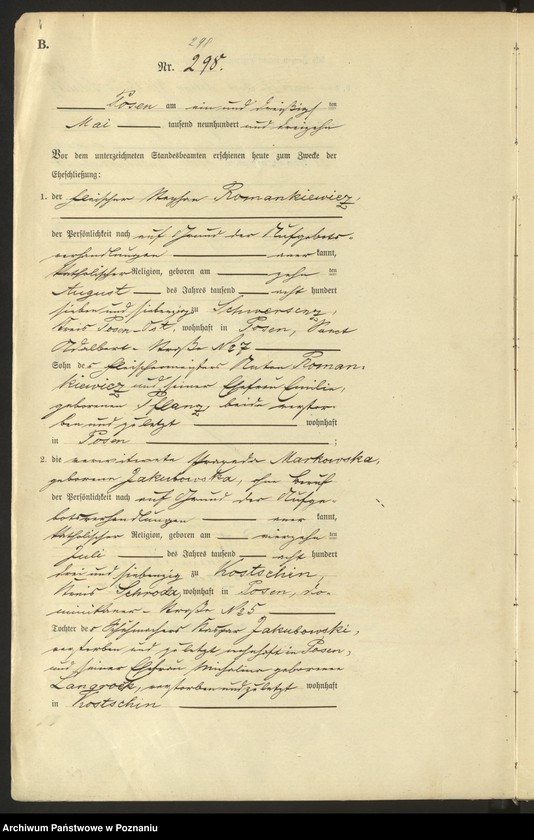 B.
291
Nr. 298.
Posen am ein und dreißigsten
Mai tausend neunhundert und dreizehn
Vor dem unterzeichneten Standesbeamten erschienen heute zum Zwecke der
Eheschließung:
1. der Fleischer Stephan Romankiewicz,
der Persönlichkeit nach auf Grund der Aufgebots-
verhandlungen aner kannt,
katholischer Religion, geboren am zehn ten
August des Jahres tausend acht hundert
sieben und siebenzig zu Schwersenz,
Kreis Posen-Ost, wohnhaft in Posen, Sanct
Adalbert-Straße № 7
Sohn des Fleischermeisters Anton Roman-
kiewicz und seiner Ehefrau Emilie,
geborenen Pflanz, beide verstor-
ben und zuletzt wohnhaft
in Posen ;
2. die verwitwete Markowska,
geborene Jakubowska, ohne Beruf
der Persönlichkeit nach auf Grund der Aufge-
botsverhandlungen aner kannt,
katholischer Religion, geboren am vierzehn ten
Juli des Jahres tausend acht hundert
drei und siebenzig zu Kostschin,
Kreis Schroda, wohnhaft in Posen, Do-
minikaner-Straße № 5
Tochter des Schuhmachers Kaspar Jakubowski,
verstorben und zuletzt wohnhaft in Posen,
und seiner Ehefrau Michalina geborenen
Langrock, verstorben und zuletzt wohnhaft
in Kostschin
Archiwum Państwowe w Poznaniu